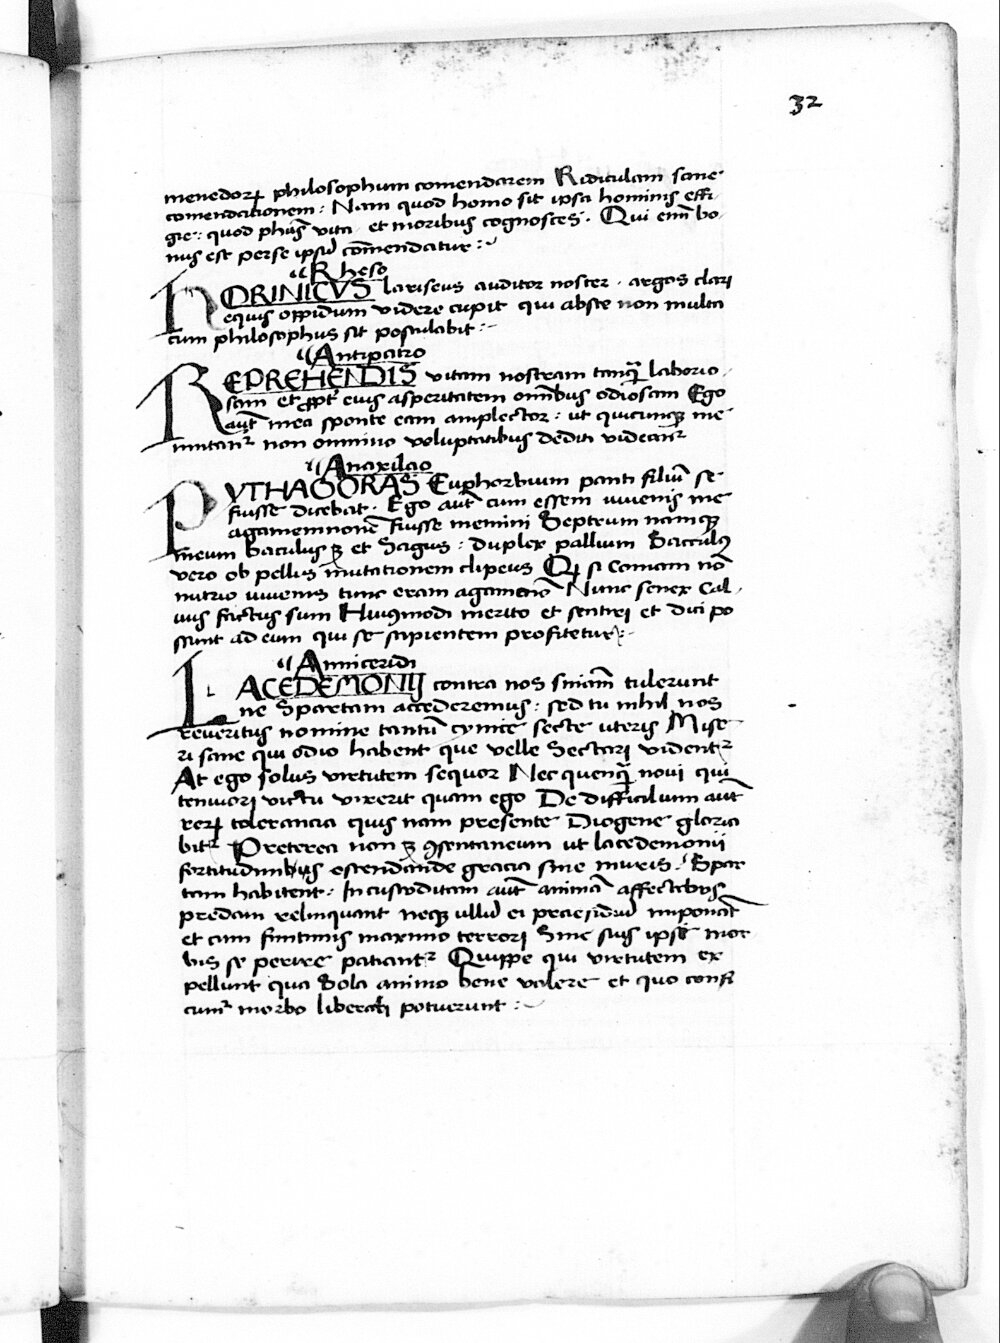 32
menedoꝝ philosophum comendarem Ridiculam sane
comendationem : Nam quod homo sit ipsa hominis effi-
gie : quod phūs vita et moribus cognosces . Qui enī bo-
nus est per se ipsū com̄endatur :~
Rheso
PORINICVS lariseus auditor noster . argos clari
equis oppidum videre cupit qui abste non multa
cum philosophus sit postulabit :~
Antipatro
REPREHENDIS vitam nostram tanq̄ laborio-
sam et ꝓpt̄ eius asperitatem om̄ibus odiosam Ego
aut̄ mea sponte eam amplector : ut quicunqꝫ me
imitant᷑ non omnino voluptatibus dediti videant᷑
Anaxilao
PYTHAGORAS Euphorbium panti filiū se
fuisse dicebat . Ego aut̄ cum essem iuvenis me
agamemnonē fuisse memini Septrum namqꝫ
meum baculus ꝫ et Sagus : duplex pallium Sacculꝰ
vero ob pellis mutationem clipeus Qꝫ si Comam nō
nutrio iuvenis tunc eram agamenō Nunc senex Cal-
vus factus sum Huiꝰmodi merito et sentiri et dici po
ssunt ad eum qui se sapientem profitetur :~
Anniceridi
LACEDEMONIJ contra nos sniam̄ tulerunt
ne Spartam accederemus : sed tu nihil nos
reveritus nomine tantū cynice secte uteris Mise-
ri sane qui odio habent que velle Sectari vident᷑
At ego solus virtutem sequor Nec quenq̄ novi qui
tenuiori victu vixerit quam ego De difficilium aut̄
reꝝ tolerancia quis nam presente Diogene gloria
bit᷑ Preterea non ꝫ ꝯsentaneum ut lacedemonii
fortitudinibus ostendande gracia sine muris . Spar
tam habitent : Incustoditam aut̄ animā affectibus
predam relinquant neqꝫ ullū ei presidiū imponāt
et cum finitimis maximo terrori Sint suis ipsi mor
bis se perire patiant᷑ Quippe qui virtutem ex
pellunt qua Sola animo bene valere et quo confi
cimur᷑ morbo liberari potuerunt :~